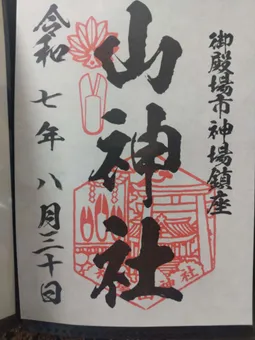 御殿場市神場鎮座
山神社
令和七年八月二十日